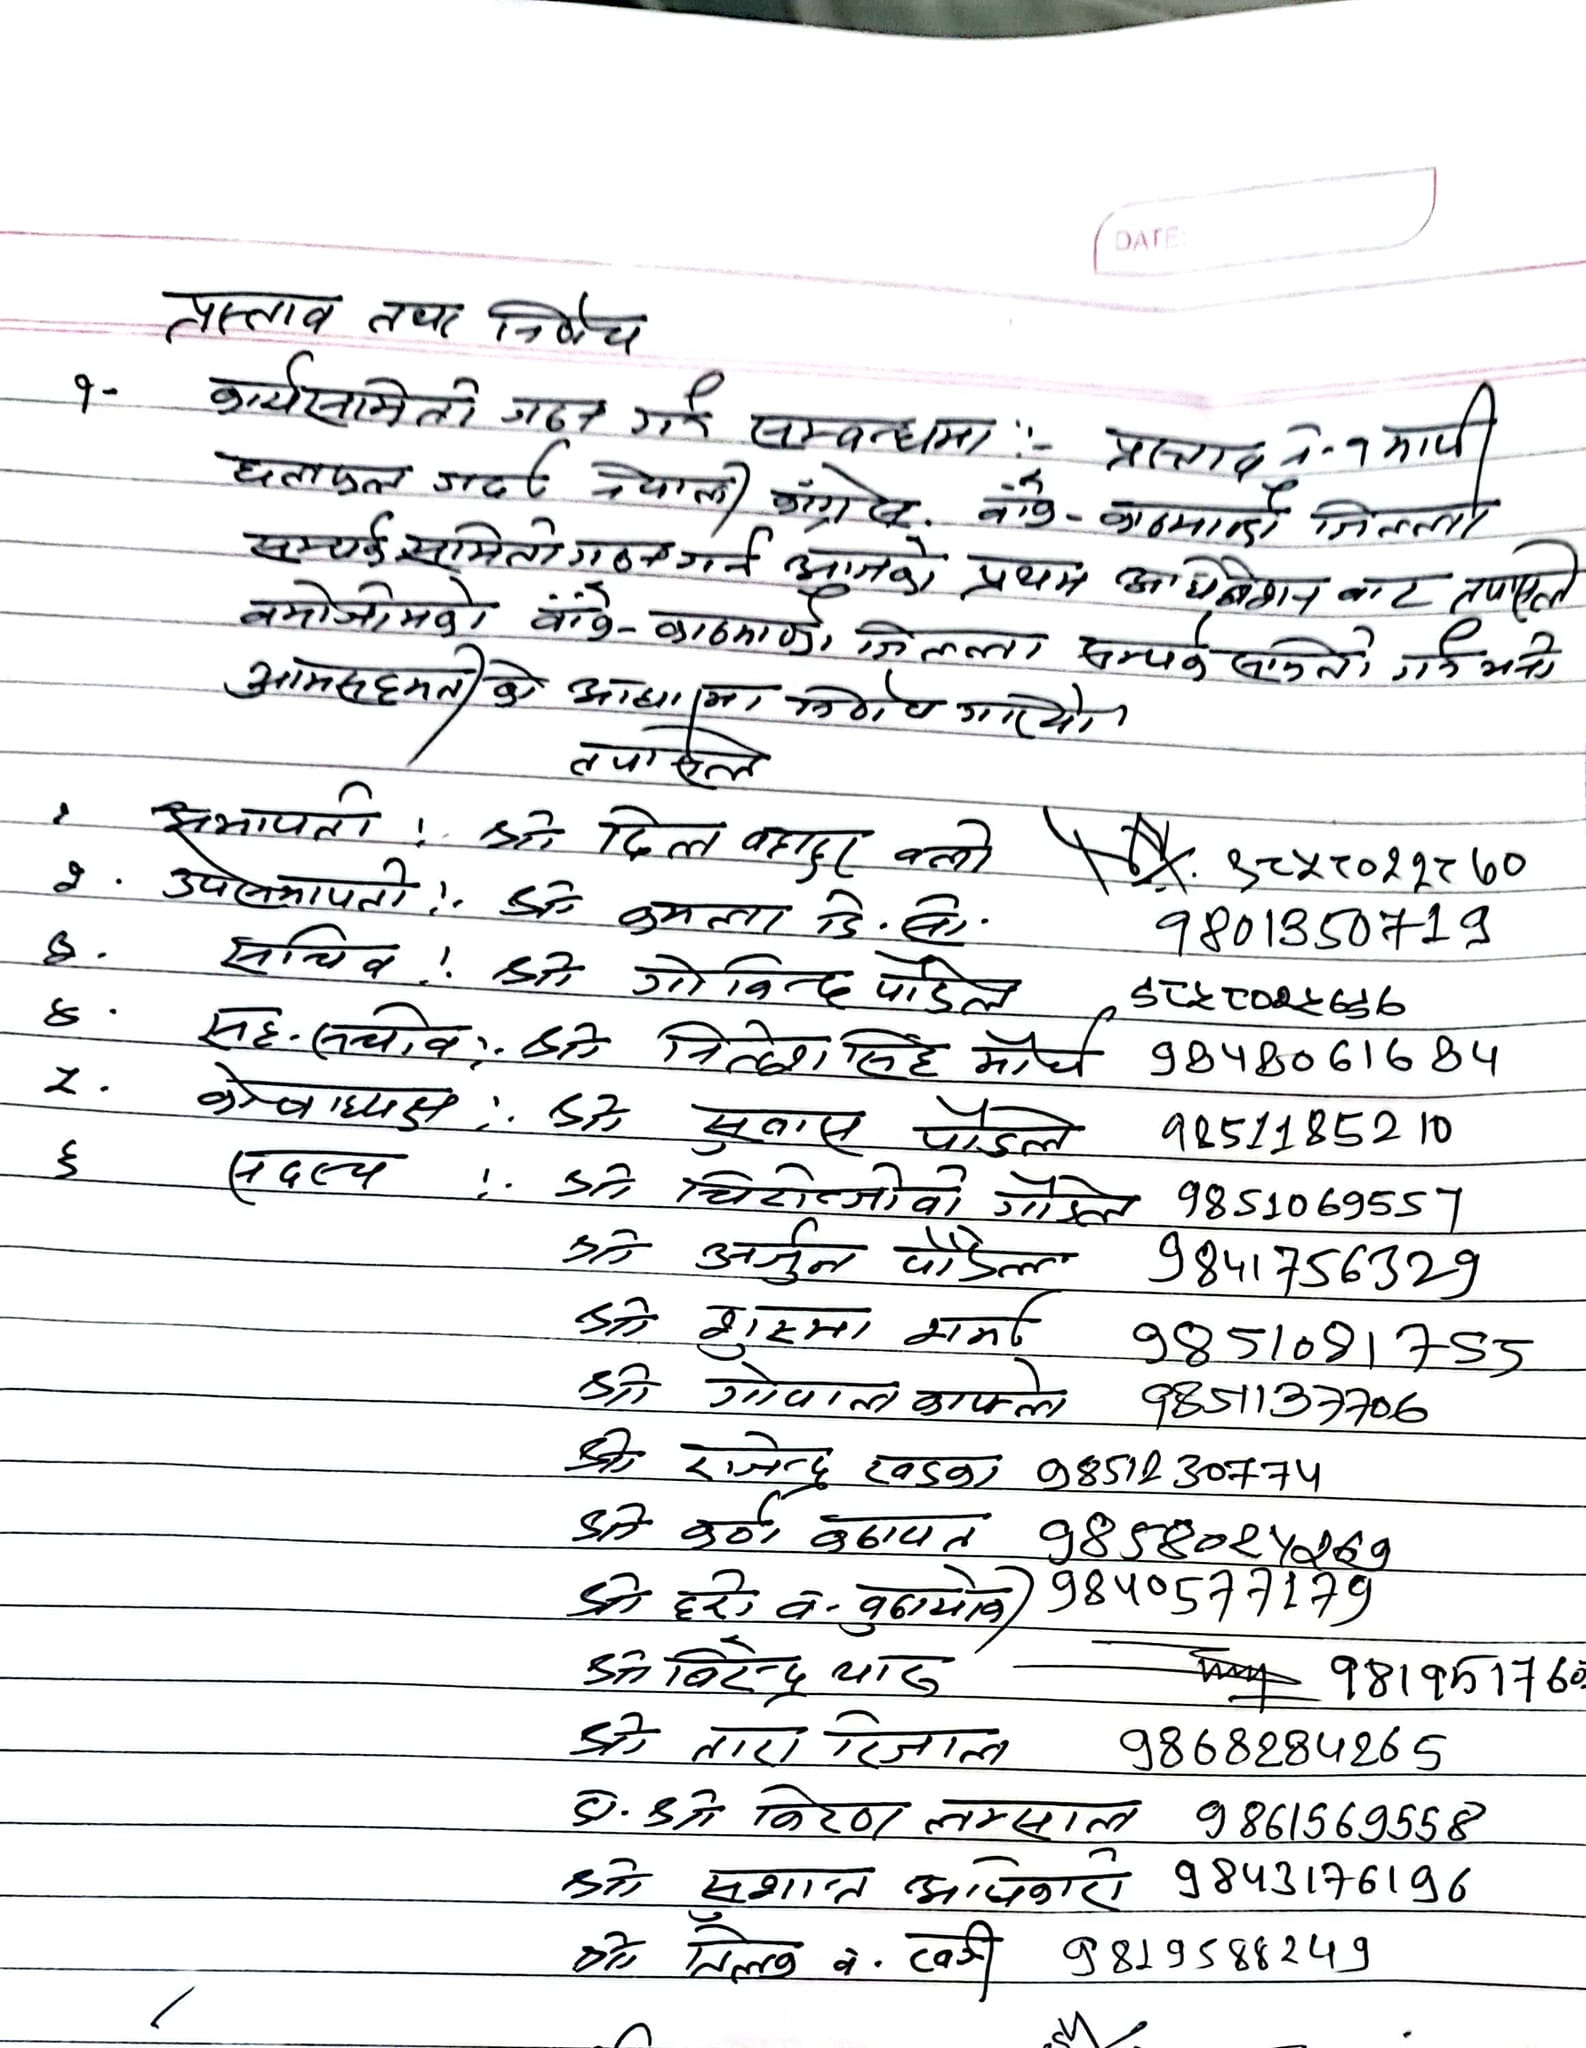 DATE:
प्रस्ताव तथा निर्णय
१- कार्यसमिती गठन गर्ने सम्बन्धमा :- प्रस्ताव नं-१ माथी
छलफल गर्दा नेपाली काँग्रेस. बाँके-काठमाडौं जिल्ला
सम्पर्क समिती गठन गर्न आजको प्रथम अधिवेशन बाट तपसिल
बमोजीमको बाँके-काठमाडौं जिल्ला सम्पर्क समिती गर्ने भनी
आमसहमती को आधारमा निर्णय गरियो।
तपसिल
१ सभापती :- श्री दिल बहादुर वली ९८५८०२२८६०
२. उपसभापती :- श्री कमला डि.सी. 9801350719
३. सचिव :- श्री गोविन्द पौडेल
४. सह-सचीव :- श्री नितेश सिंह मौर्य 9848061684
५. कोषाध्यक्ष :- श्री सुवास पौडेल 9851185210
६ सदस्य :- श्री चिरोन्जीवी पौडेल 9851069557
श्री अर्जुन पौडेल 9841756329
श्री शुष्मा शर्मा 9851081755
श्री गोपाल काफ्ले 9851133706
श्री राजेन्द्र खडका 9851230774
श्री कर्ण कठायत 9858024269
श्री हरी ब. बुढाथोकी 9840577179
श्री विरेन्द्र यादव
श्री तारा रिजाल 9868284265
श्री किरण लम्साल 9861569558
श्री सुशान्त अधिकारी 9843176196
श्री तिलक ब. खत्री 9819588249